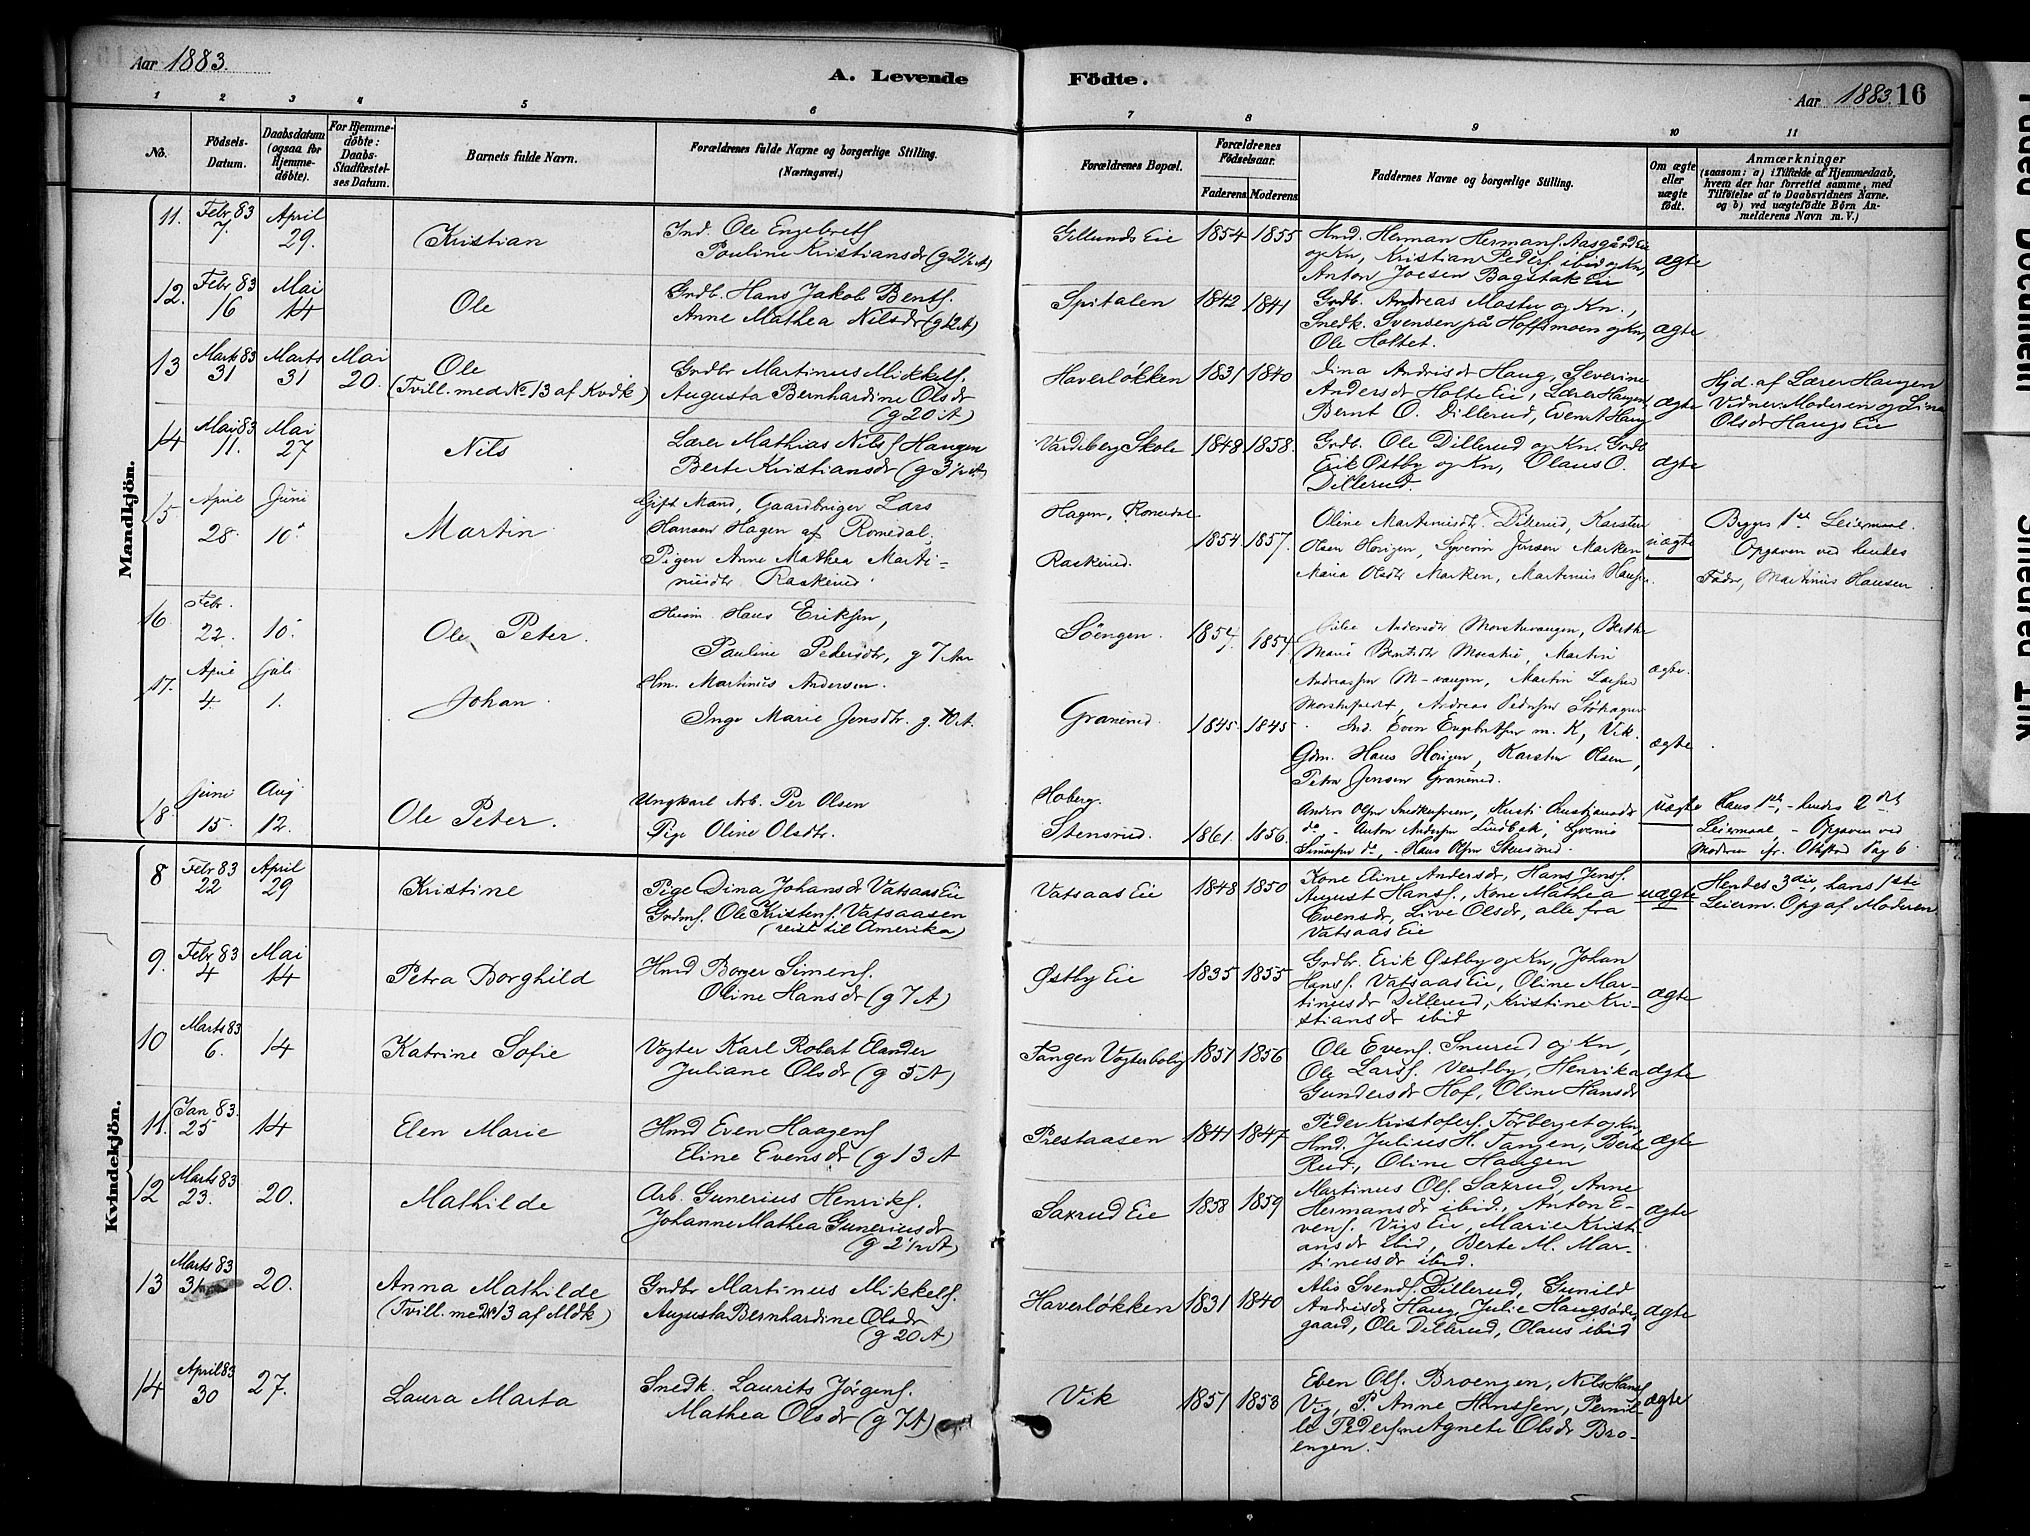 Aar 1883.
A. Levende Födte.
Aar 1883. 16
1 2 3 4 5 6 7 8 9 10 11
No.
Födsels-Datum.
Daabsdatum (ogsaa for Hjemme-döbte).
For Hjemme-döbte: Daabs-Stadfæstel-ses Datum.
Barnets fulde Navn.
Forældrenes fulde Navne og borgerlige Stilling. (Næringsvei.)
Forældrenes Bopæl.
Forældrenes Födselsaar.
Faderens. Moderens.
Faddernes Navne og borgerlige Stilling.
Om ægte eller uægte födt.
Anmærkninger
(saasom: a) i Tilfælde af Hjemmedaab,
hvem der har forrettet samme, med
Tilföielse af to Daabsvidners Navne.
og b) ved uægtefödte Börn An-
melderens Navn m. V.)
Mandkjön.
11. Febr 83 7 April 29. Kristian
Ind. Ole Engebretf.
Pauline Kristiansdr (g 2½ A)
Gillunds Eie 1854 1855
Hmd. Herman Hermansf. Aasgård Eie
og Kn, Kristian Pedersf. ibid og Kn,
Anton Joesen Bagstak Eie
ægte
12. Febr 83 16 Mai 14 Ole
Grdb. Hans Jakob Bentf.
Anne Mathea Nilsdr (g 12 A)
Spitalen 1842 1841
Grdb. Andreas Mostu og Kn.,
Snedk. Svensen på Hoffsmoen og Kn,
Ole Holtet.
ægte
13 Marts 83 31 Marts 31 Mai 20. Ole
(Tvill. med No 13 af Kvdk)
Grdbr Martinus Mikkelf.
Augusta Bernhardine Olsdr
(g 20 A)
Haverløkken 1831 1840
Dina Andrisdr Haug, Severine
Andersdr Holte Eie, Lærer Haugen,
Bernt O. Dillerud, Even A Haug
ægte
Hjd. af Lærer Haugen
Vidner: Moderen og Lina
Olsdr Haugs Eie
14 Mai 83 11. Mai 27 Nils
Lærer Mathias Nilsf Haugen
Berte Kristiansdr (g 3½ A)
Vardeberg Skole 1848 1858.
Grdb. Ole Dillerud og Kn. Grdb
Erik Østby og Kn, Olaus O.
Dillerud.
ægte
15 April 28. Juni 10. Martin
Gift Mand, Gaardbruger Lars
Hansen Hagen af Romedal,
Pigen Anne Mathea Marti-
nusdtr. Raskerud.
Hagen, Romedal
Raskerud 1854 1857.
Oline Martinusdtr. Dillerud, Karsten
Olsen Horgen, Syverin Jensen Marken
Maria Olsdtr Marken, Martinus Hansen.
uægte
Begges 1ste Leiermaal.
Opgaven ved hendes
Fader, Martinus Hansen
16 Febr. 22. 10. Ole Peter.
Husm. Hans Eriksen,
Pauline Pedersdtr, g 7 Aar
Söengen. 1857. 1857.
Andersdtr Morstuvangen, Berthe
Marie Berntsdtr Morstu, Martin
Andreassen M-vangen, Martin Larsen
Morstu, Andreas Pedersen
ægte.
17. April 4. Juli 1. Johan.
Hm. Martinus Andersen.
Inge Marie Jensdtr. g. 10 A.
Granerud. 1845. 1845
Ind. Even Engebretsen m. K, Vik.
Gdm. Hans Horgen, Karsten Olsen,
Petra Jensen Granerud.
ægte
18. Juni 15. Aug 12. Ole Peter.
Ungkarl Arb. Per Olsen
Pige Oline Olsdtr.
Hoberg.
Stensrud. 1861. 1856.
Anders Olsen, Kristiansdtr
do - Anton Andersen Lindbak, Syverin
Simensen do, - Hans Olsen Stensrud.
uægte
Hans 1ste, - hendes 2det
Leiermaal, - Opgaven ved
Moderen Pag 6.
Kvindekjön.
8 Febr 83 22 April 29 Kristine
Pige Dina Johansdr Vatsaas Eie
Grdmf. Ole Kristenf. Vatsaasen
(reist til Amerika)
Vatsaas Eie 1848 1850
Kone Eline Andersdr, Hans Jensf.
August Hansf., Kone Mathea
Evensdr, Live Olsdr, alle fra
Vatsaas Eie
uægte
Hendes 3die, hans 1ste
Leierm. Opg af Moderen.
9. Febr 83 4 Mai 14 Petra Borghild
Hmd Borger Simenf.
Oline Hansdr (g 7 A)
Østby Eie 1835 1855
Grdbr. Erik Østby og Kn, Johan
Hansf. Vatsaas Eie, Oline Mar-
tinusdr Dillerud, Kristine Kri-
stiansdr ibid
ægte
10 Marts 83 6. 14 Katrine Sofie
Vogter Karl Robert Elander
Juliane Olsdr (g 5 A)
Tangen Vogterbolig 1851 1856
Ole Evenf. Snurud og Kn,
Ole Larsf. Vestby, Henrika
Gundersdr Hof, Oline Hansdr
ægte
11. Jan 83. 25 14 Elen Marie
Hmd Even Haagenf
Eline Evensdr (g 13 A
Prestaasen 1841 1847
Peder Kristofersf. Torberget og Kn,
Hmd. Julius H. Tangen, Berte
Rud, Oline Haugen
ægte
12 Marts 83 23. 20. Mathilde
Arb. Gunerius Henrikf.
Johanne Mathea Guneriusdr
(g 2½ A)
Saxrud Eie 1858 1859
Martinus Olf. Saxrud, Anne
Hermansdr ibid., Anton E-
venf. Vigs Eie, Marie Kristi-
ansdr ibid, Berte M. Mar-
tinusdr ibid.
ægte
13 Marts 83 31 20. Anna Mathilde
(Tvill. med No 13 af Mdk)
Grdbr Martinus Mikkelf.
Augusta Bernhardine Olsdr
(g 20 A)
Haverløkken 1831 1840
Alis Svendf. Dillerud, Gunild
Andrisdr Haug, Julie Haugsøde-
gaard, Ole Dillerud, Olaus ibid
ægte
14 April 83 30 27. Laura Marta
Snedk. Laurits Jørgenf.
Mathea Olsdr (g 7 A)
Vik 1851 1853
Even Olf. Broengen, Nils Hansf
Vig, P. Anne Hanssen, Pernil-
le Pedersen Agnete Olsdr Bro-
engen.
ægte
Faded Document
Smeared Ink